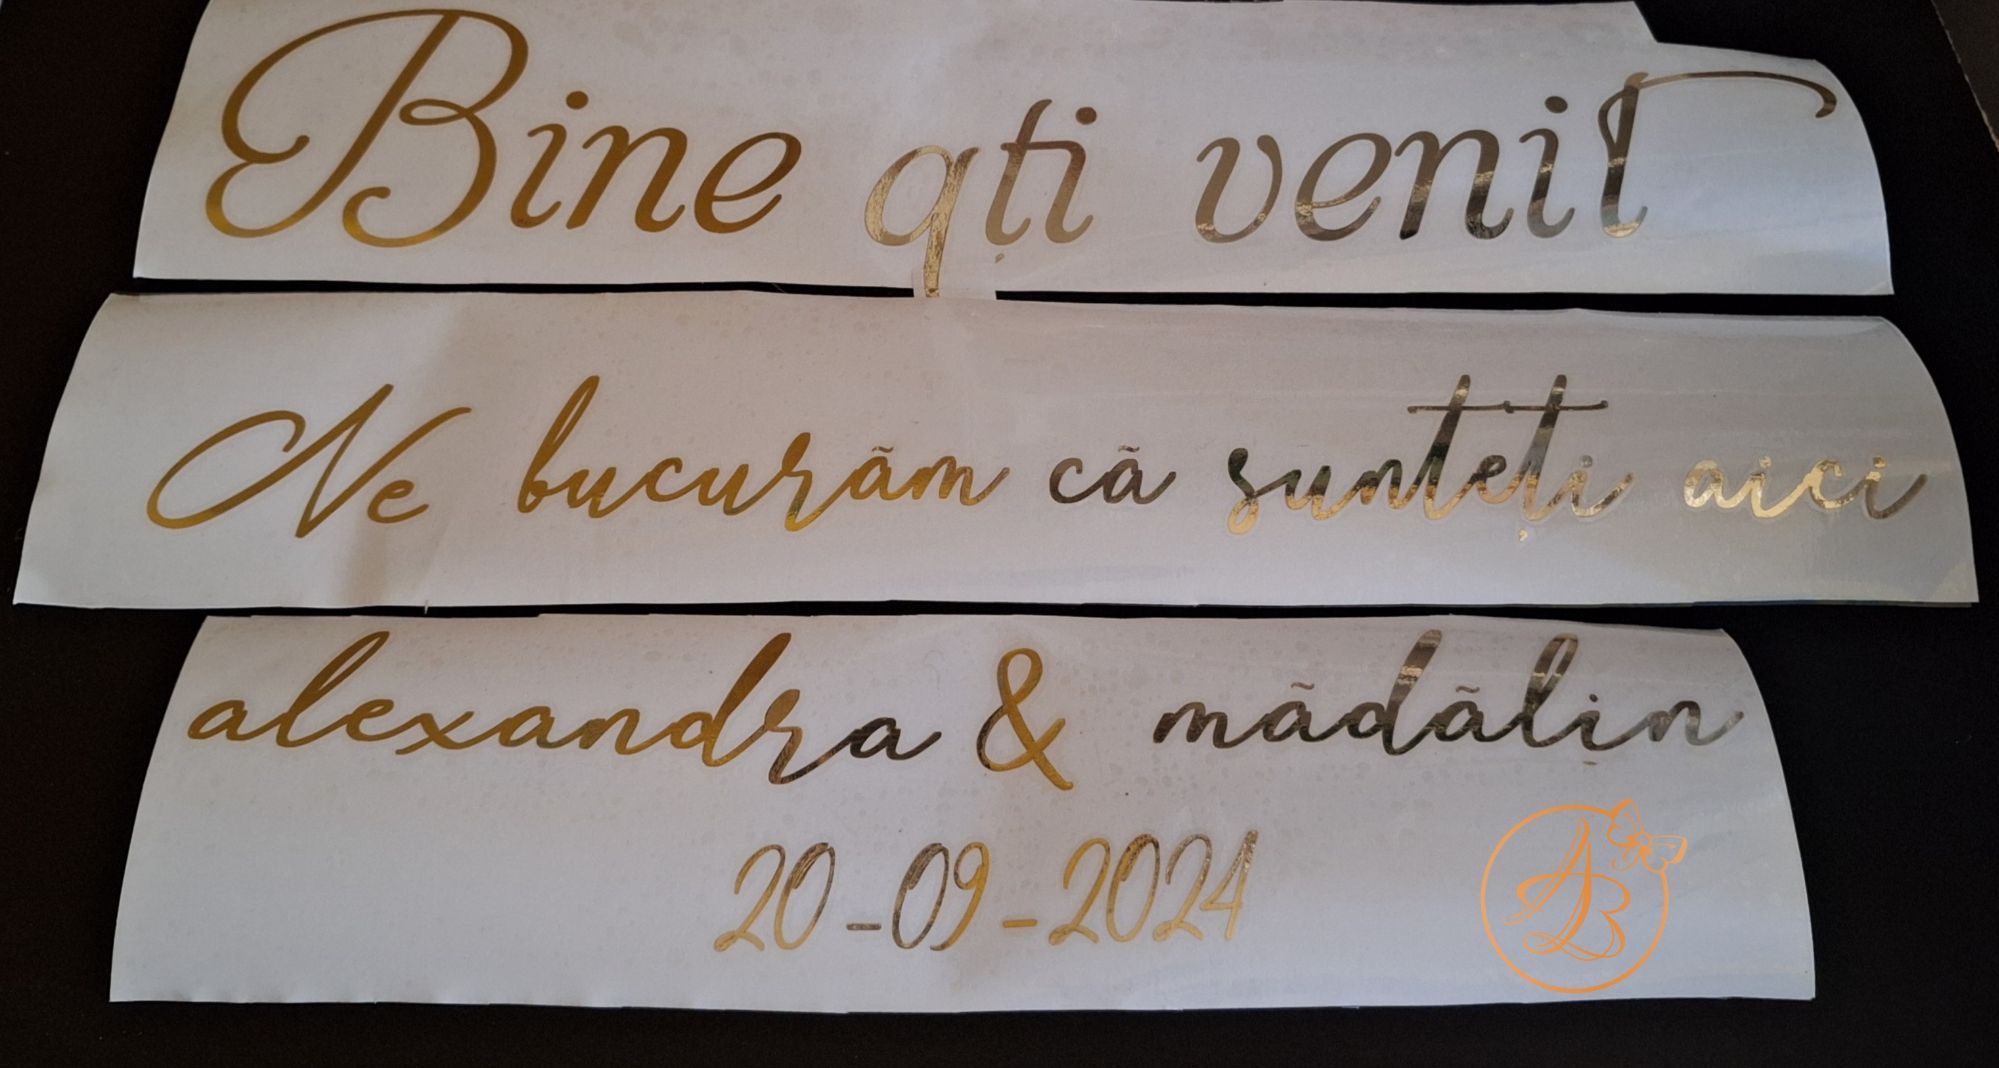 Bine ați venit
Ne bucurăm că sunteți aici
alexandra & mădălin
20-09-2024
AB